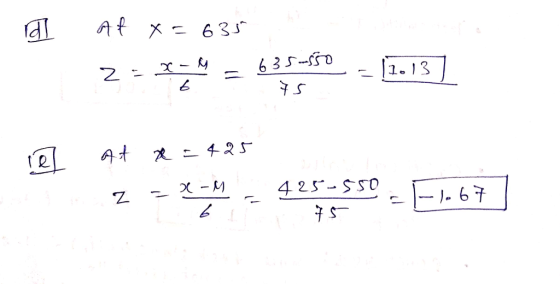 d At x = 635
Z = x-M/6 = 635-550/75 = 1.13
e At x = 425
Z = x-M/6 = 425-550/75 = -1.67